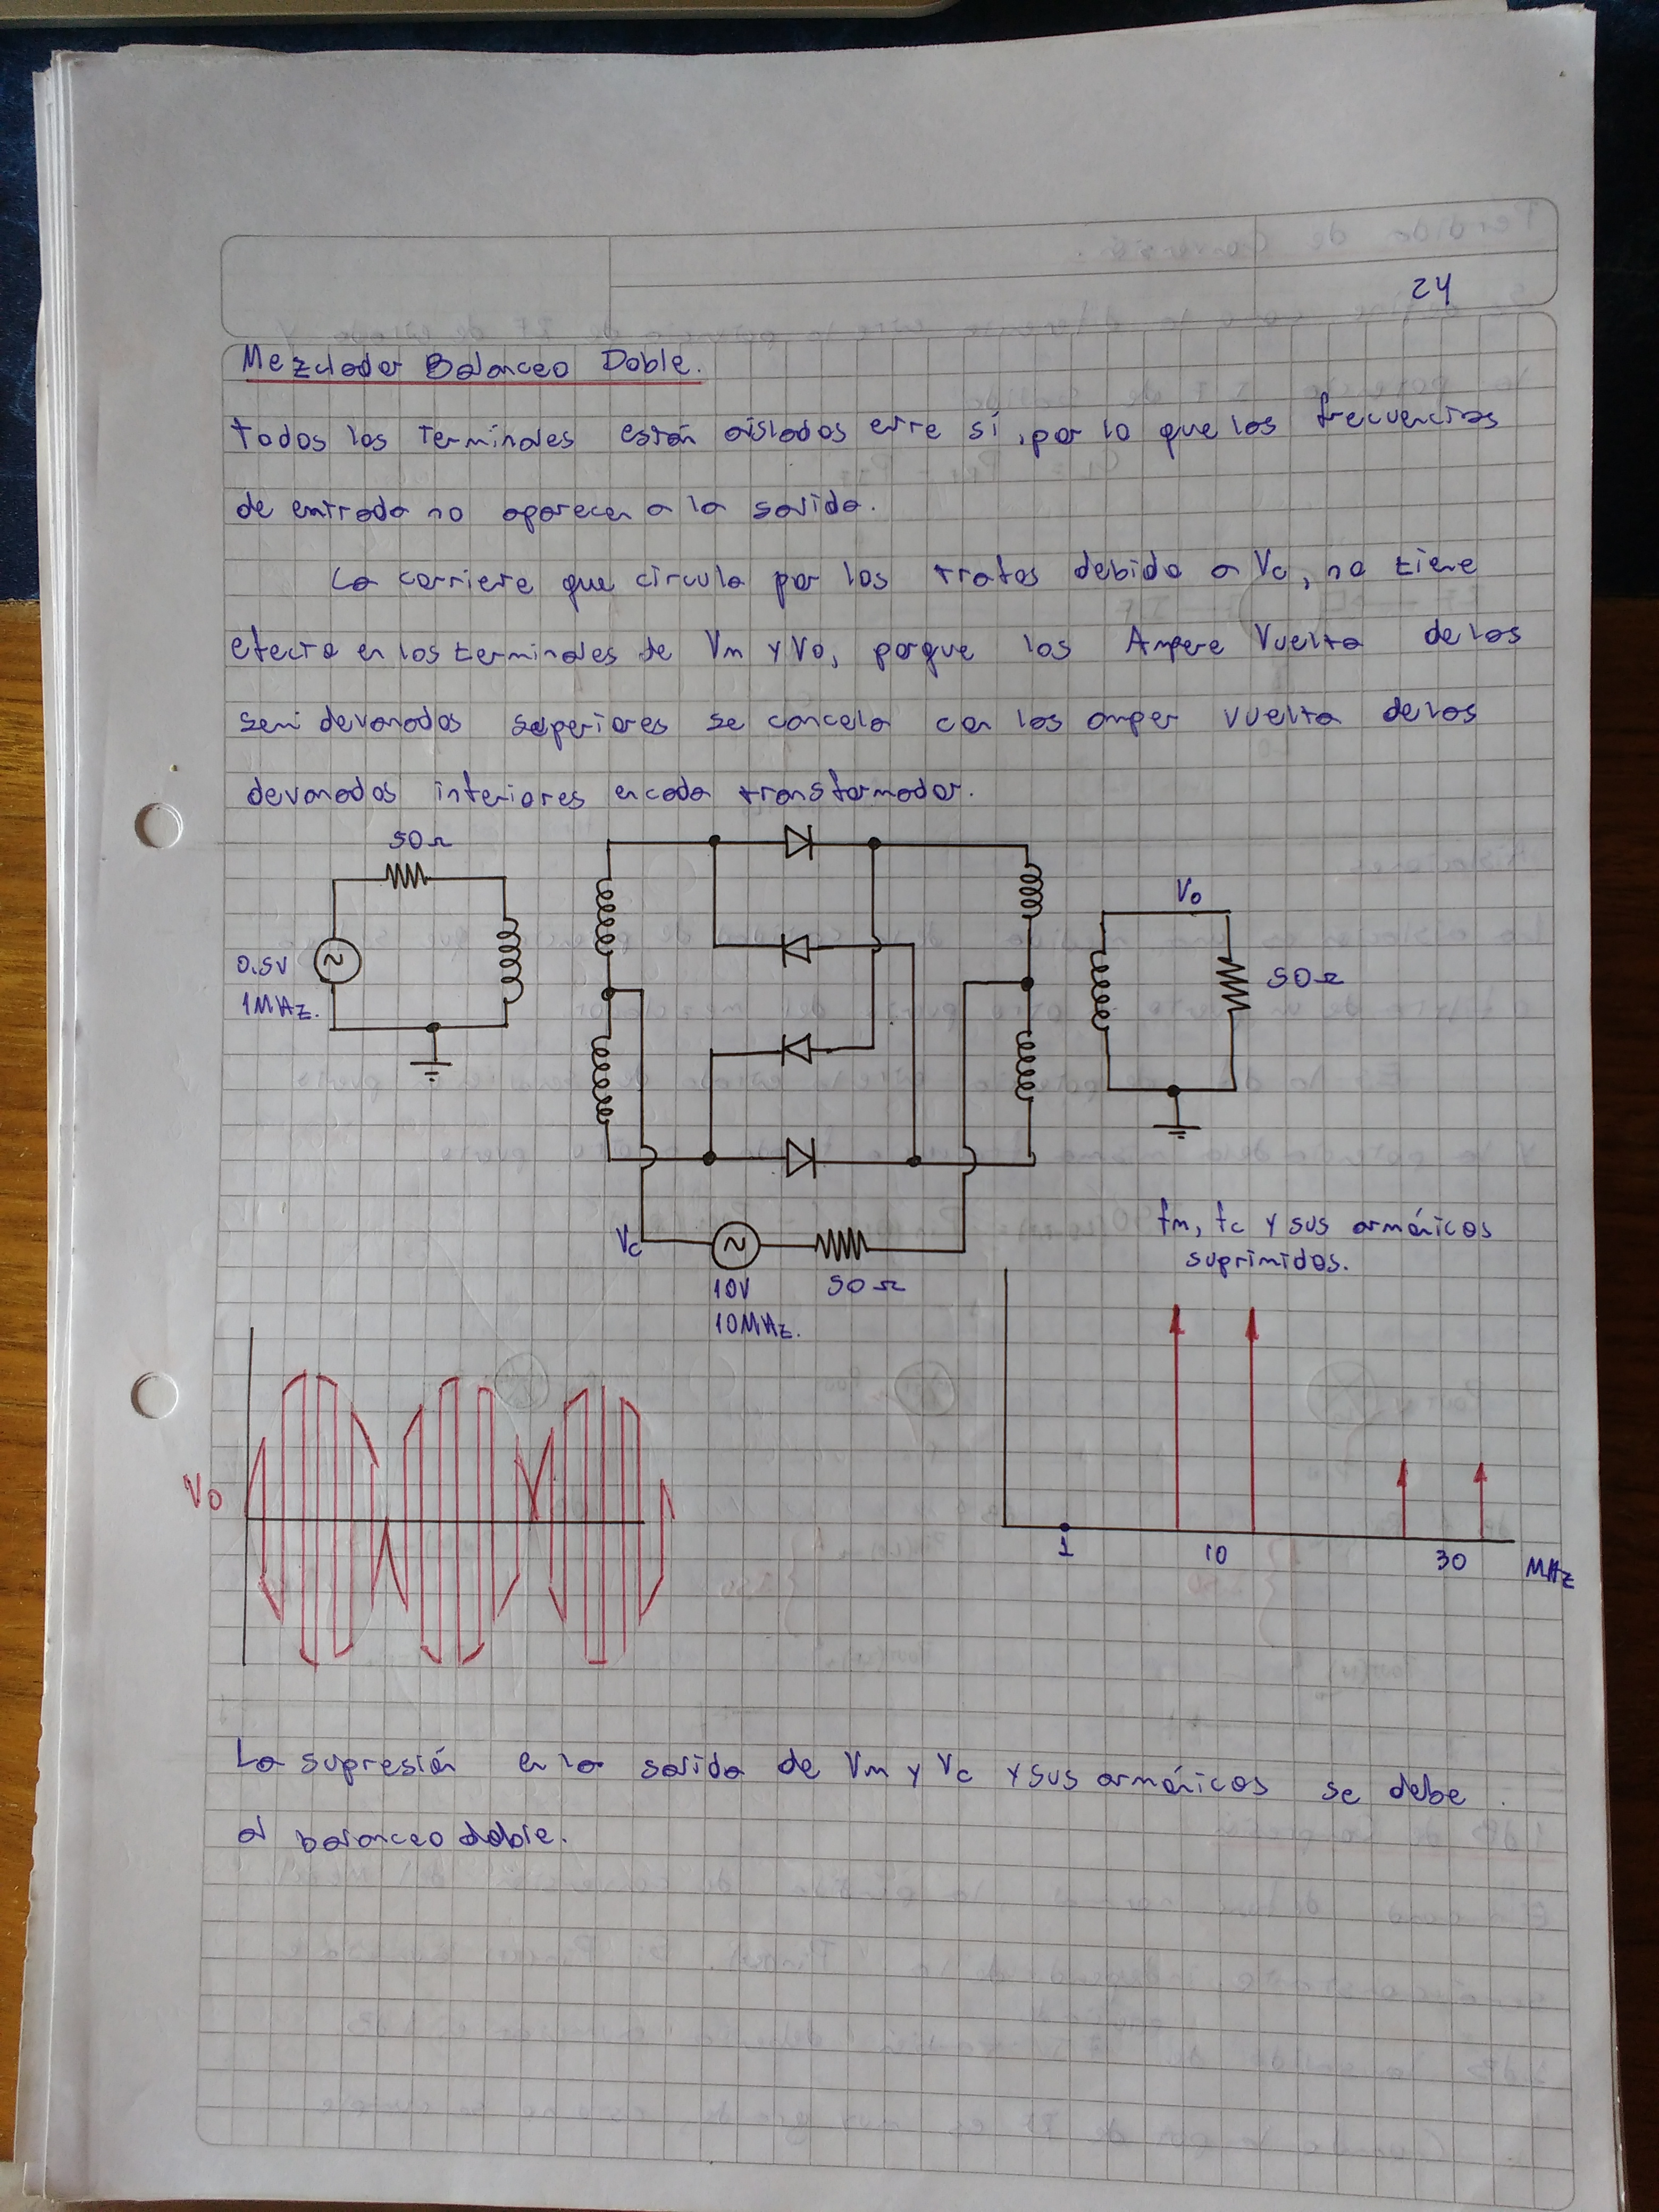 24
Mezclador Balanceo Doble.
todos los Terminales están aislados entre sí, por lo que las frecuencias
de entrada no aparecen a la salida.
La corriente que circula por los trafos debido a Vc, no tiene
efecto en los terminales de Vm y Vo, porque los Ampere Vuelta de los
semi devanados superiores se cancela con los amper vuelta de los
devanados inferiores en cada transformador.
50Ω
0.5V
1MHz.
Vo
50Ω
Vc
10V
10MHz.
50Ω
fm, fc y sus armónicos
suprimidos.
Vo
1 10 30 MHz
La supresión en la salida de Vm y Vc y sus armónicos se debe
al balanceo doble.